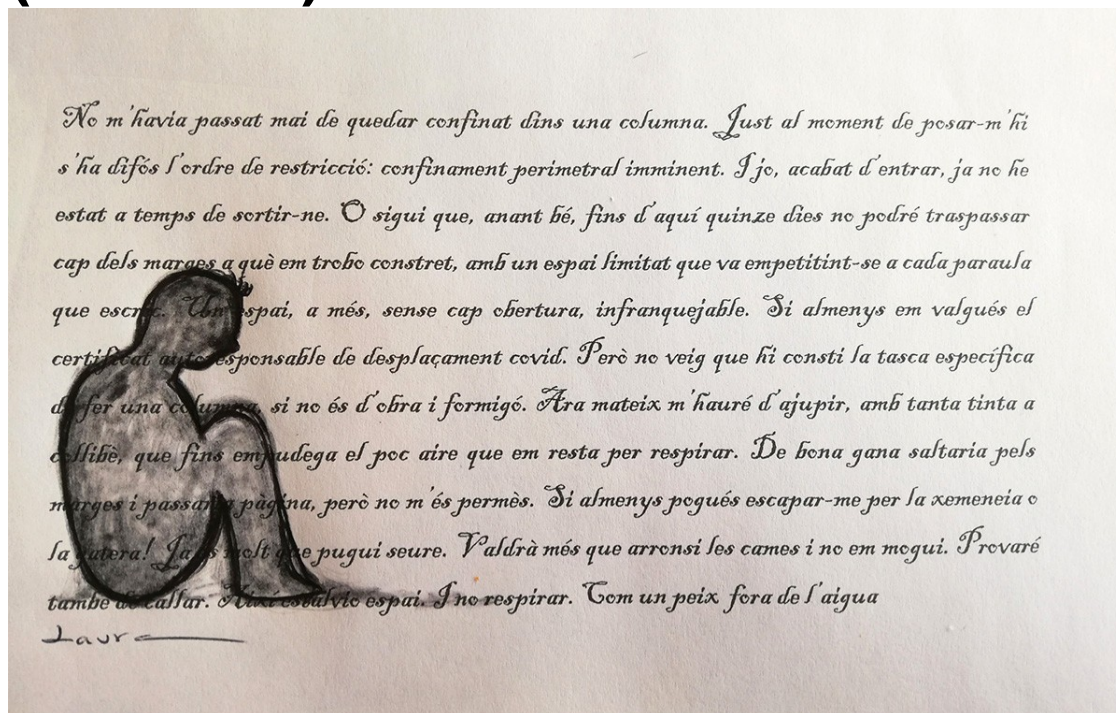 No m'havia passat mai de quedar confinat dins una columna. Just al moment de posar-m'hi
s'ha difós l'ordre de restricció: confinament perimetral imminent. I jo, acabat d'entrar, ja no he
estat a temps de sortir-ne. O sigui que, anant bé, fins d'aquí quinze dies no podré traspassar
cap dels marges a què em trobo constret, amb un espai limitat que va empetitint-se a cada paraula
que escric. Un espai, a més, sense cap obertura, infranquejable. Si almenys em valgués el
certificat autoresponsable de desplaçament covid. Però no veig que hi consti la tasca específica
de fer una columna, si no és d'obra i formigó. Ara mateix m'hauré d'ajupir, amb tanta tinta a
collibè, que fins empudega el poc aire que em resta per respirar. De bona gana saltaria pels
marges i passaria pàgina, però no m'és permès. Si almenys pogués escapar-me per la xemeneia o
la gatera! Ja és molt que pugui seure. Valdrà més que arronsi les cames i no em mogui. Provaré
també de callar. Així estalvio espai. I no respirar. Com un peix fora de l'aigua
Laura